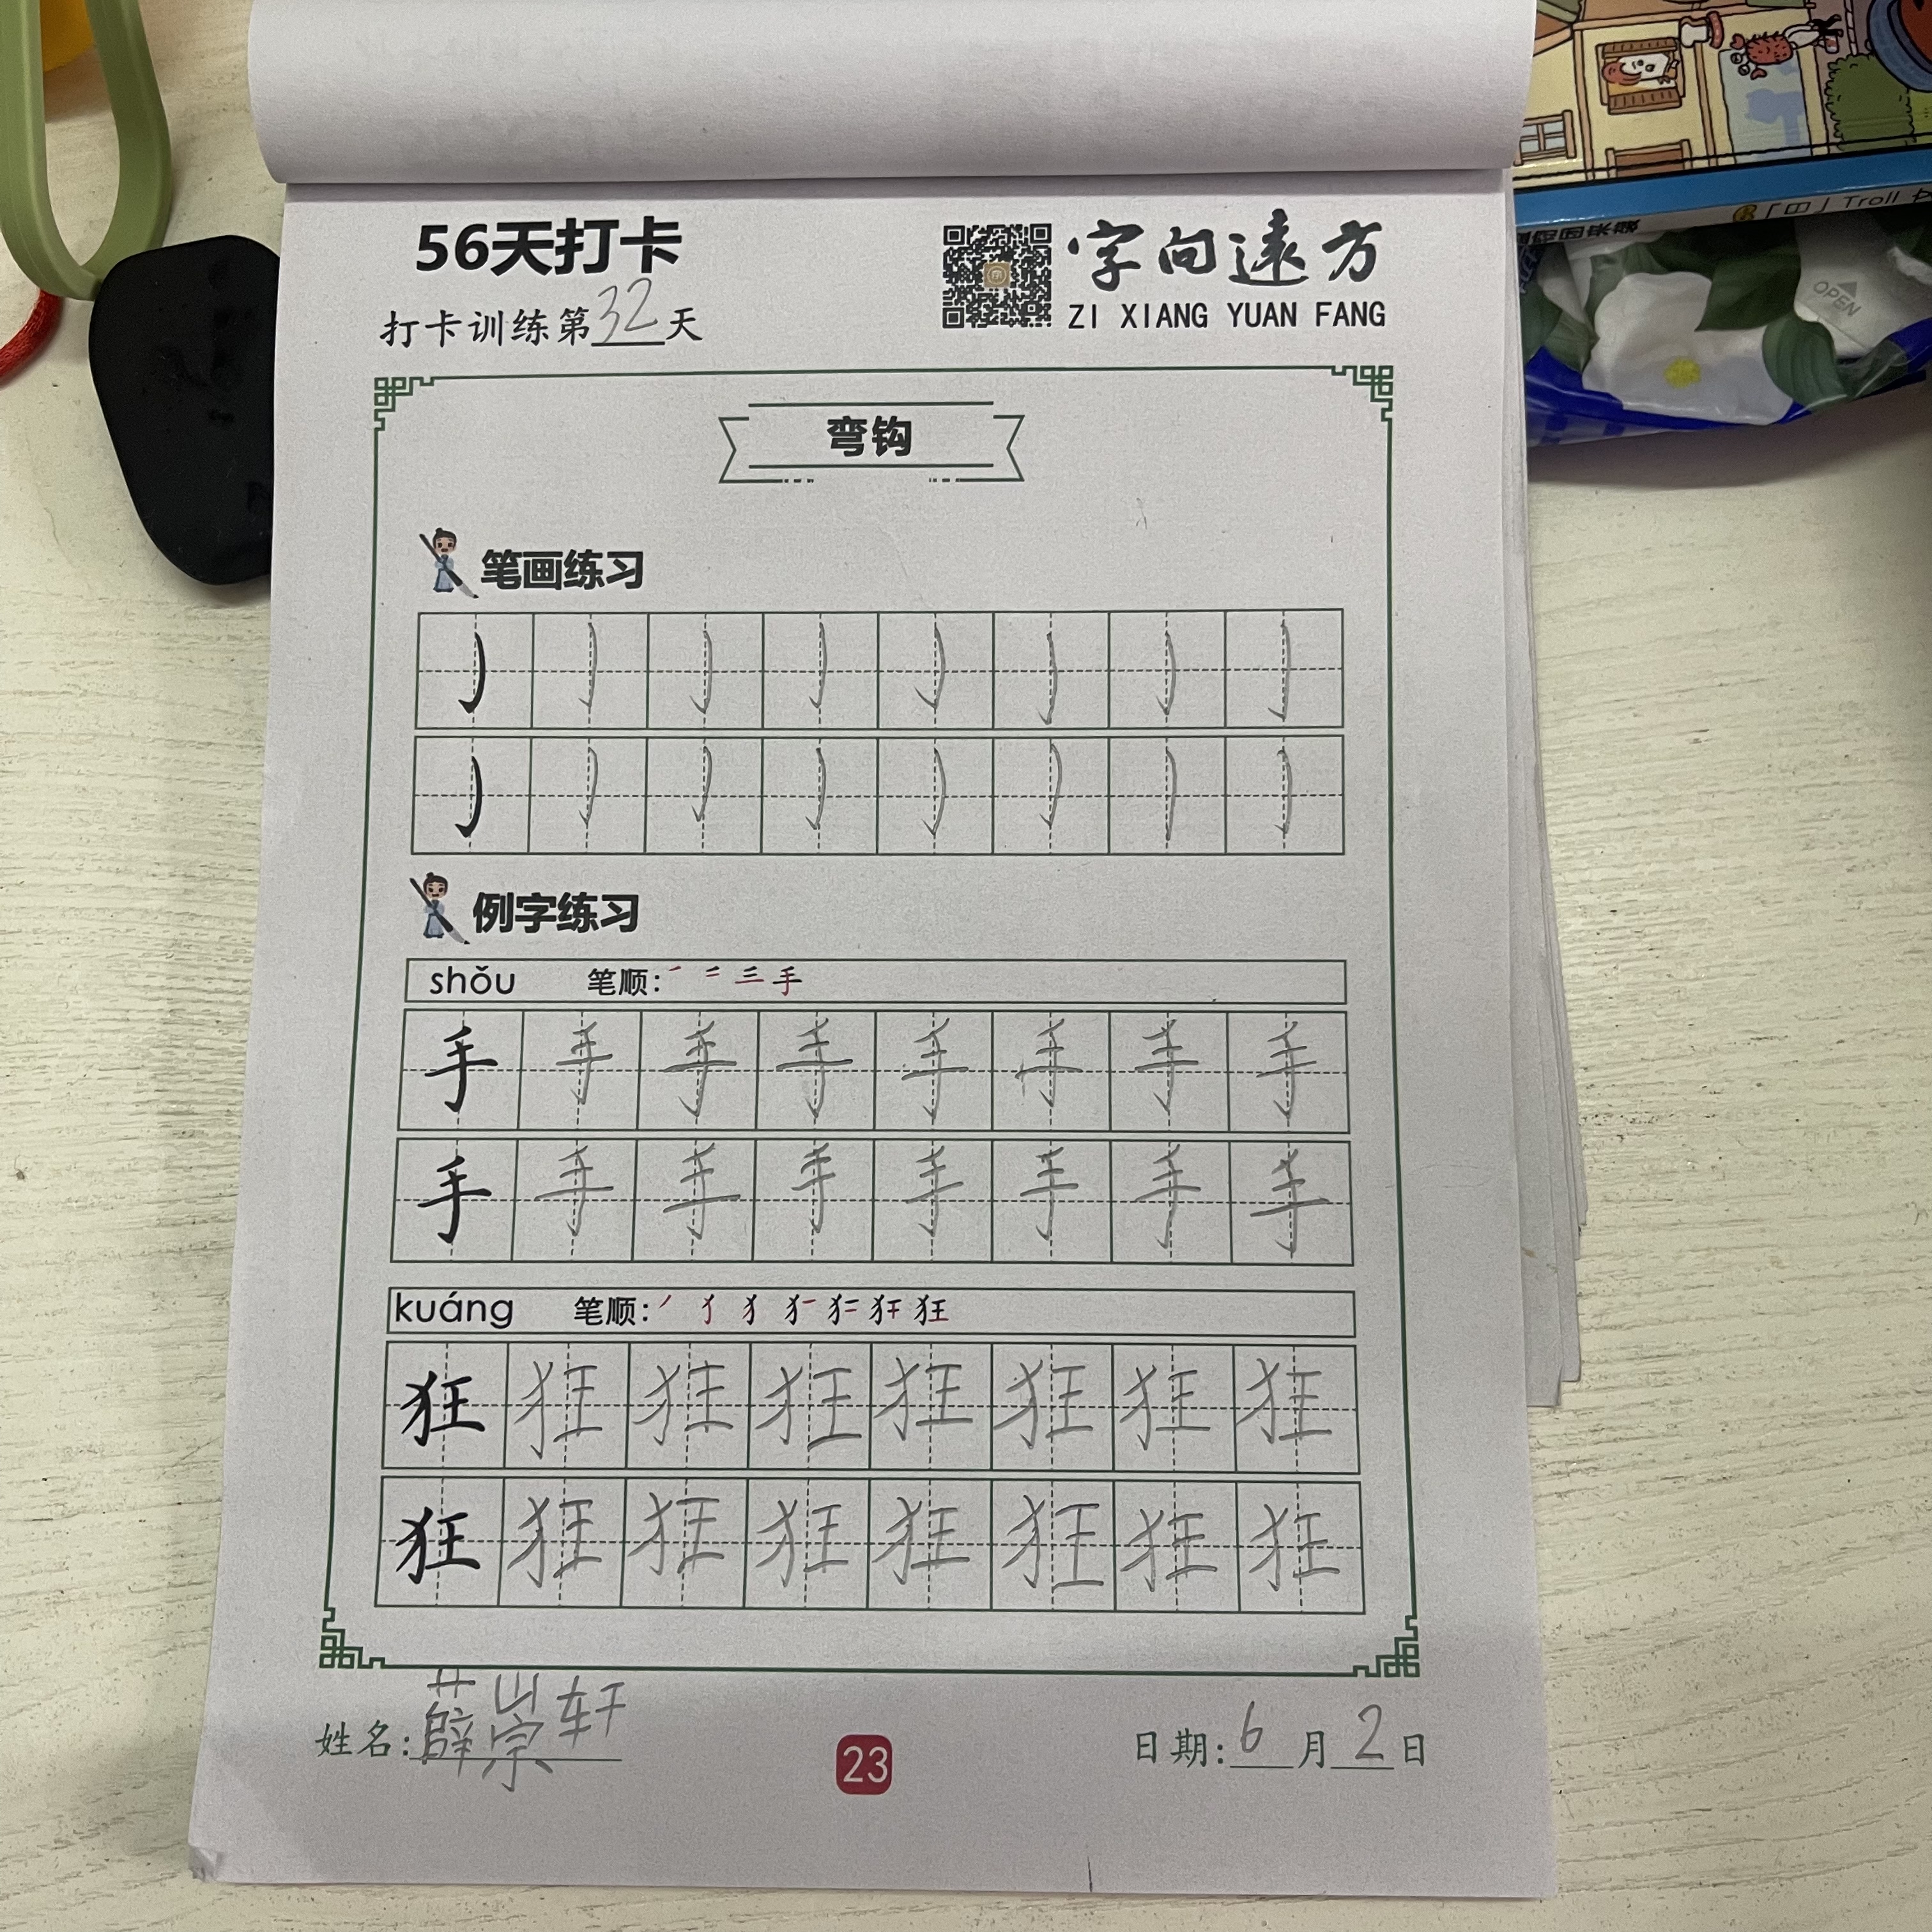 56天打卡
字向远方
ZI XIANG YUAN FANG
打卡训练第32天
弯钩
笔画练习
例字练习
shǒu 笔顺: 一 二 三 手
手 手 手 手 手 手 手 手
手 手 手 手 手 手 手 手
kuáng 笔顺: 狂
狂 狂 狂 狂 狂 狂 狂 狂
狂 狂 狂 狂 狂 狂 狂 狂
姓名: 薛崇轩
23
日期: 6 月 2 日
Troll
OPEN